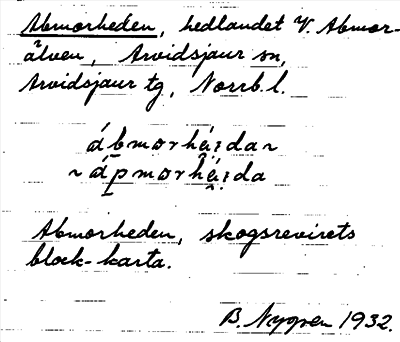 Abmorheden, hedlandet V. Abmor-
älven, Arvidsjaur sn,
Arvidsjaur tg, Norrb. l.
ábmorhẹ́i:da ~
~ ápmorhẹ́i:da
Abmorheden, skogsrevirets
block-karta.
B. Nygren 1932.